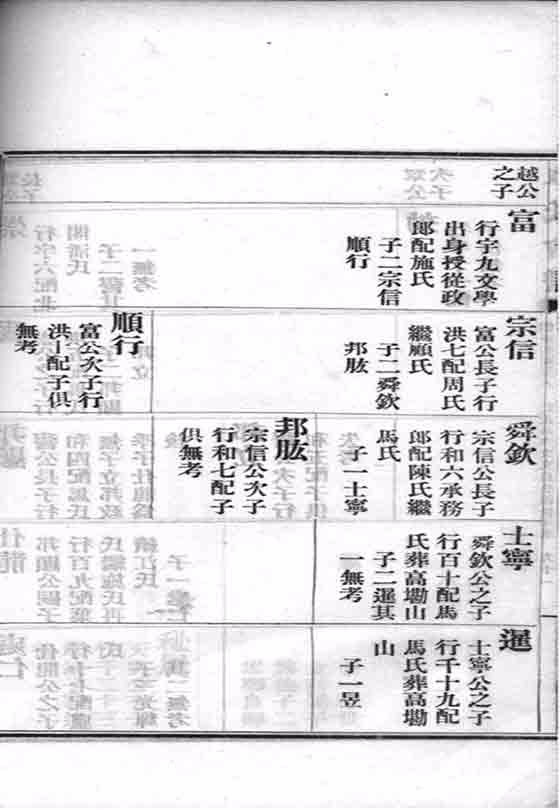 越公
之子
富
行宇九文學
出身授從政
郎配施氏
子二宗信
順行
宗信
富公長子行
洪七配周氏
繼顧氏
子二舜欽
邦肱
順行
富公次子行
洪十配子俱
無考
舜欽
宗信公長子
行和六承務
郎配陳氏繼
馬氏
子一士寧
邦肱
宗信公次子
行和七配子
俱無考
士寧
舜欽公之子
行百十配馬
氏葬高墈山
子二暹其
一無考
暹
士寧公之子
行千十九配
馬氏葬高墈
山
子一昱